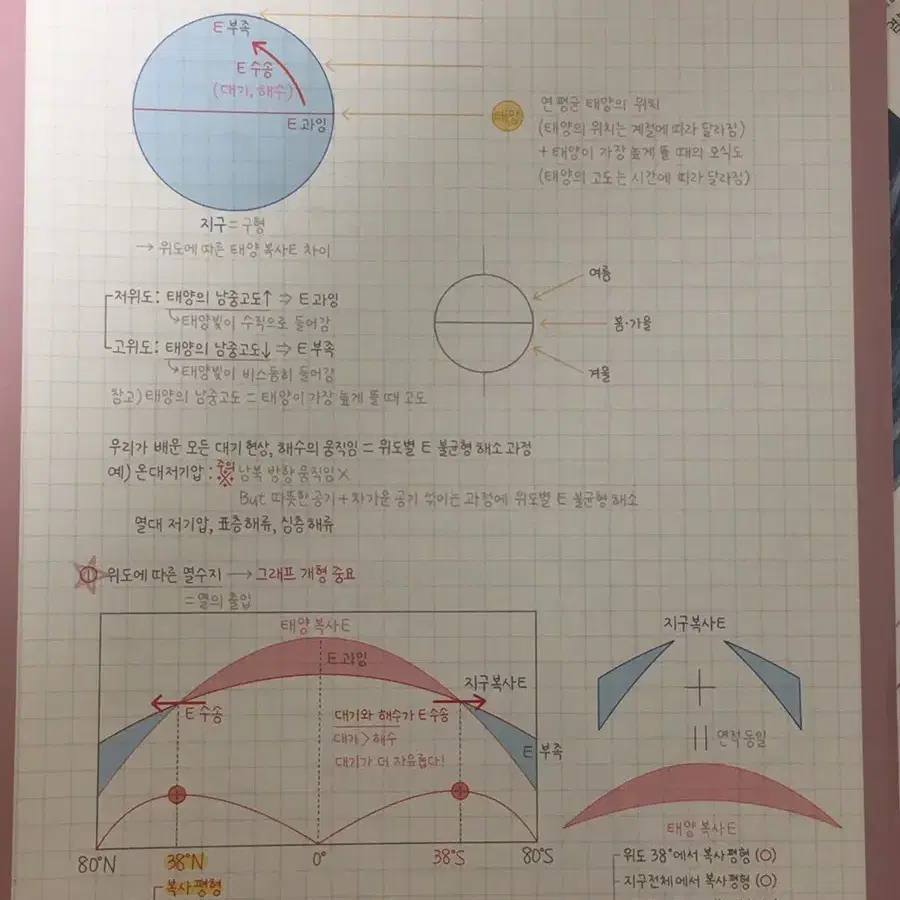 E 부족
E 수송
(대기, 해수)
E 과잉
태양
연 평균 태양의 위치
(태양의 위치는 계절에 따라 달라짐)
+ 태양이 가장 높게 뜰 때의 모식도
(태양의 고도는 시간에 따라 달라짐)
지구 = 구형
→ 위도에 따른 태양 복사E 차이
저위도: 태양의 남중고도↑ ⇒ E 과잉
↳태양빛이 수직으로 들어감
고위도: 태양의 남중고도↓ ⇒ E 부족
↳태양빛이 비스듬히 들어감
참고) 태양의 남중고도 = 태양이 가장 높게 뜰 때 고도
여름
봄·가을
겨울
우리가 배운 모든 대기 현상, 해수의 움직임 = 위도별 E 불균형 해소 과정
예) 온대저기압: 주의 ※ 남북 방향 움직임 X
But 따뜻한 공기 + 차가운 공기 섞이는 과정에 위도별 E 불균형 해소
열대 저기압, 표층 해류, 심층 해류
① 위도에 따른 열수지 → 그래프 개형 중요
= 열의 출입
태양 복사E
E 과잉
지구복사E
E 수송
대기와 해수가 E 수송
대기 > 해수
대기가 더 자유롭다!
E 부족
80°N
38°N
0°
38°S
80°S
복사 평형
지구복사E
+
|| 면적 동일
태양 복사E
위도 38°에서 복사평형 (O)
지구전체에서 복사평형 (O)